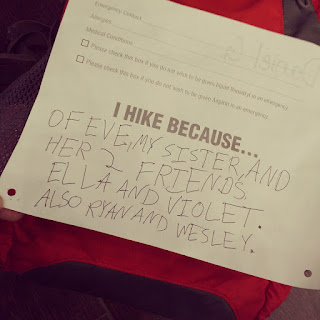 Emergency Contact
Allergies
Medical Conditions
Please check this box if you do not wish to be given in an emergency.
Please check this box if you do not wish to be given Aspirin in an emergency.
I HIKE BECAUSE...
OF EVE, MY SISTER, AND
HER 2 FRIENDS.
ELLA AND VIOLET.
ALSO RYAN AND WESLEY.